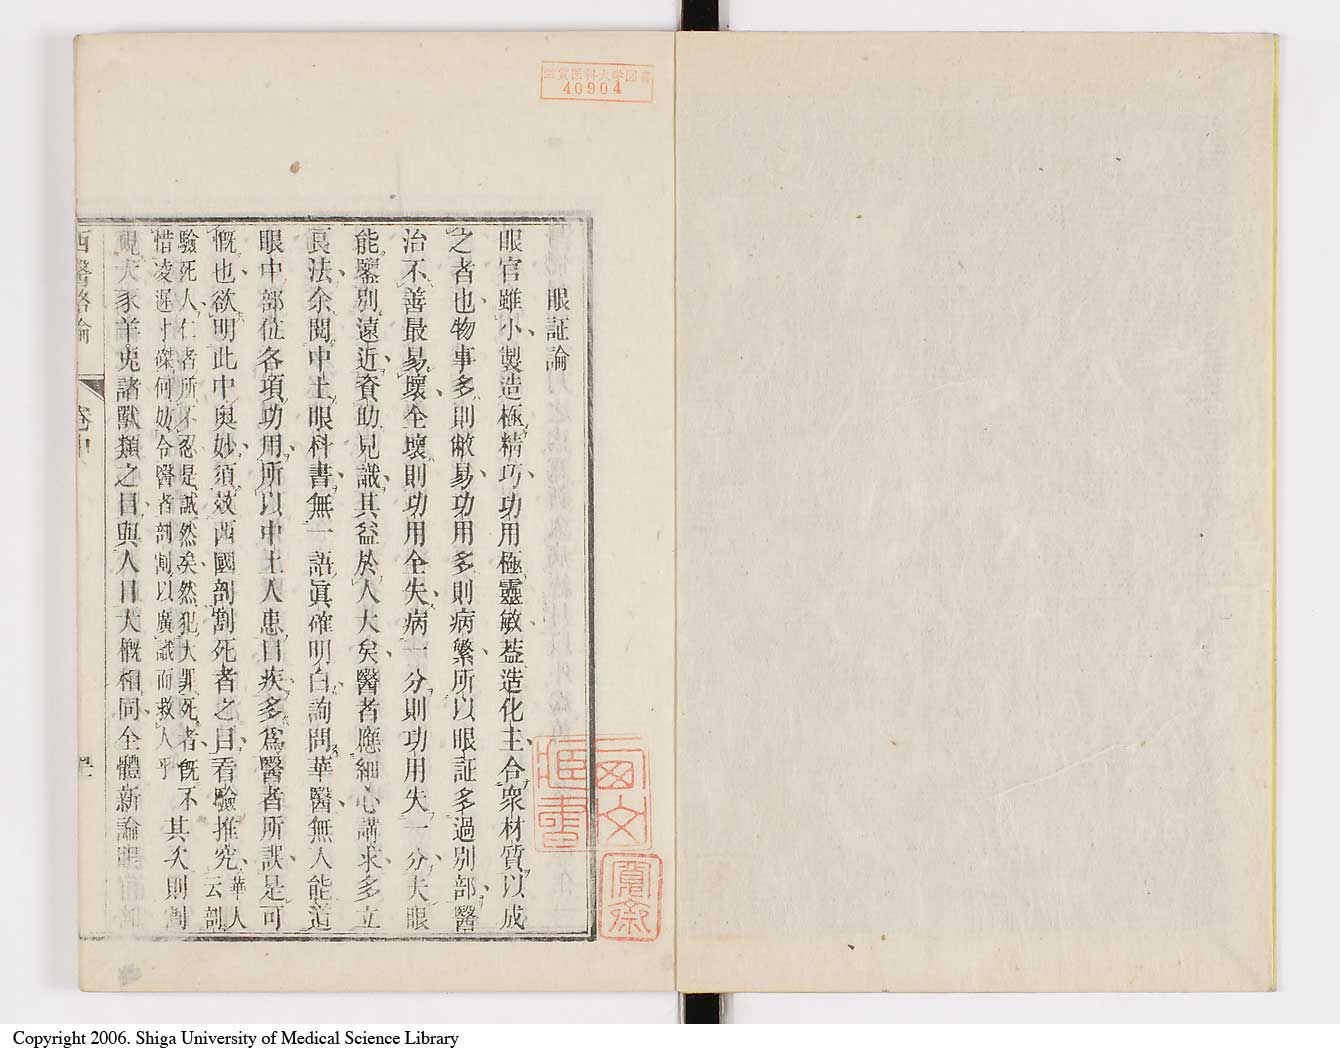 滋賀医科大学図書
40904
眼証論
眼官雖小製造極精巧功用極靈敏葢造化主合衆材質以成
之者也物事多則敝易功用多則病繁所以眼証多過別部醫
治不善最易壞全壞則功用全失病一分則功用失一分夫眼
能鑒別遠近資助見識其益於人大矣醫者應細心講求多立
良法余閱中土眼科書無一語眞確明白詢問華醫無人能道
眼中部位各項功用所以中土人患目疾多爲醫者所誤是可
慨也欲明此中奥妙須效西國剖割死者之目看驗推究華人云剖
驗死人仁者所不忍是誠然矣然犯大罪死者旣不其次則割
惜凌遲寸磔何妨令醫者剖割以廣識而救人乎
視犬豕羊兎諸獸類之目與人目大概相同全體新論
西醫略論
卷中
Copyright 2006. Shiga University of Medical Science Library